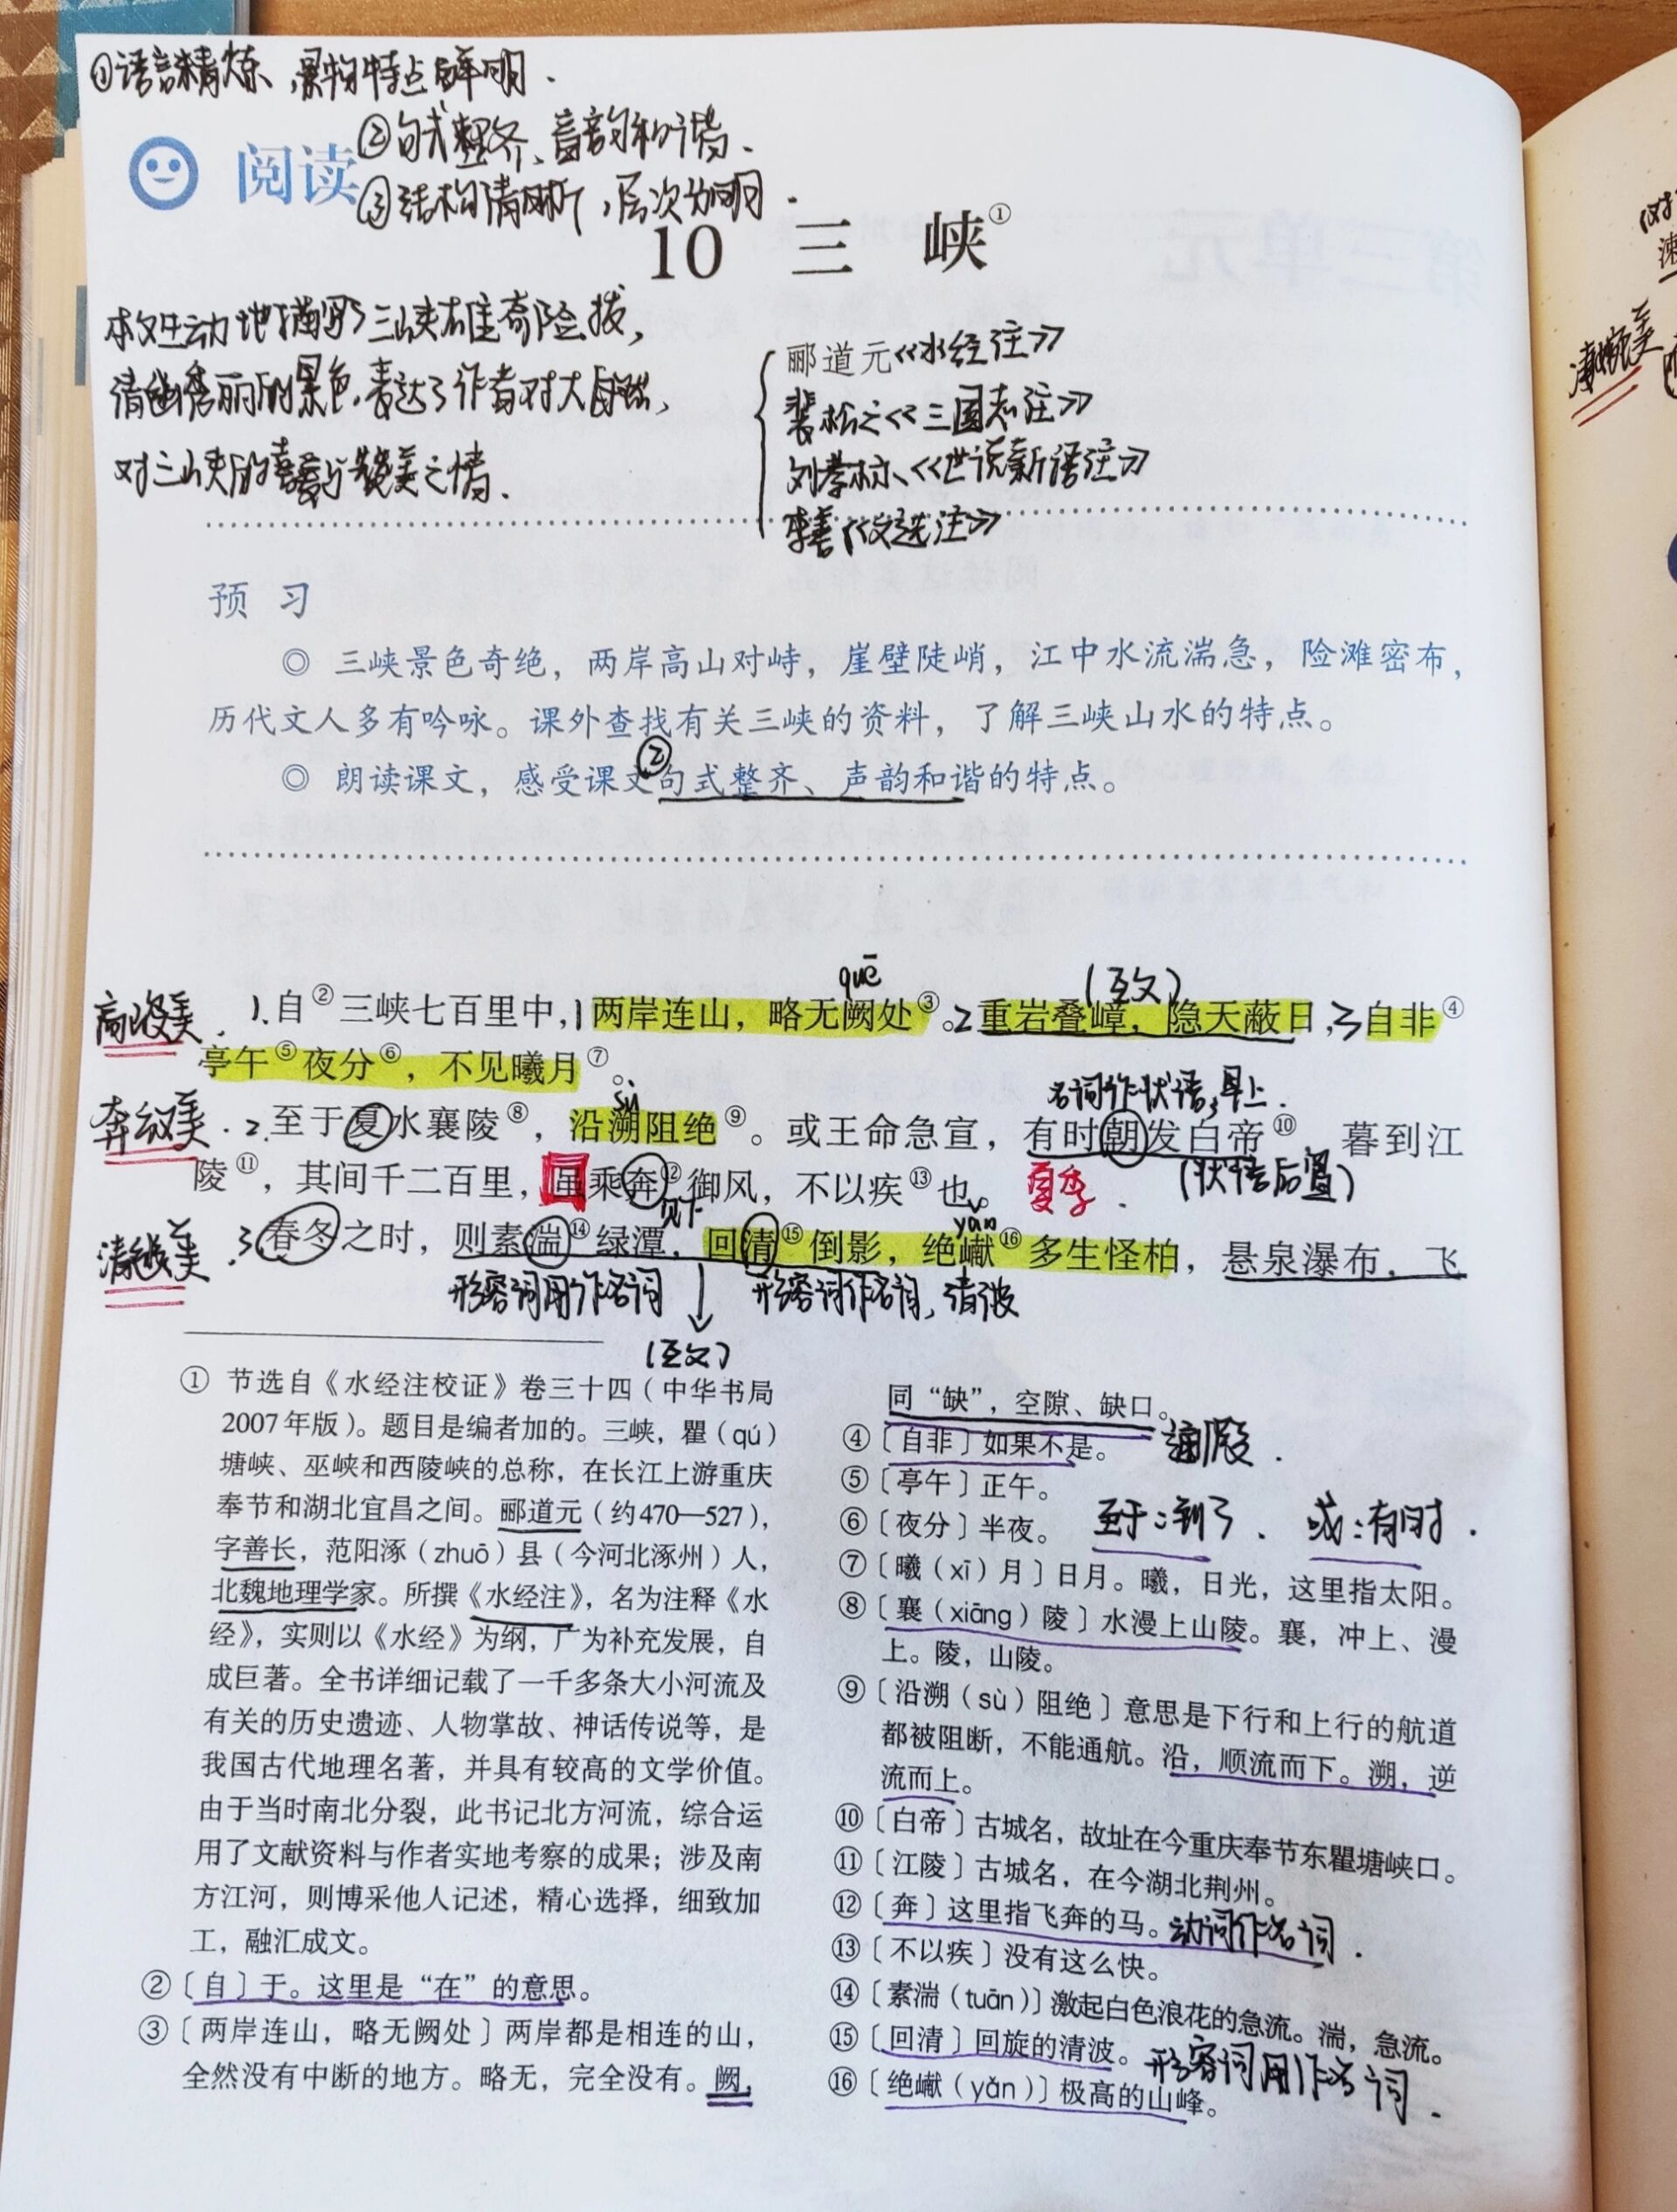 ①语言精炼、景物特点鲜明.
②句式整齐、音韵和谐.
阅读
③结构清晰,层次分明.
10 三 峡①
本文生动地描写了三峡雄奇险拔,
清幽秀丽的景色,表达了作者对大自然,
对三峡的喜爱与赞美之情.
郦道元《水经注》
裴松之《三国志注》
刘孝标、《世说新语注》
李善《文选注》
预 习
◎ 三峡景色奇绝，两岸高山对峙，崖壁陡峭，江中水流湍急，险滩密布，
历代文人多有吟咏。课外查找有关三峡的资料，了解三峡山水的特点。
②
◎ 朗读课文，感受课文句式整齐、声韵和谐的特点。
quē
(互文)
高峻美.
1.自②三峡七百里中,1两岸连山，略无阙处③。2重岩叠嶂，隐天蔽日,3自非④
亭午⑤夜分⑥，不见曦月⑦。
sù
名词作状语,早上.
奔放美.
2.至于夏水襄陵⑧，沿溯阻绝⑨。或王命急宣，有时朝发白帝⑩，暮到江
陵⑪，其间千二百里，虽乘奔⑫御风，不以疾⑬也。
夏季.
(状语后置)
见下
yǎn
清幽美.
3.春冬之时，则素湍⑭绿潭，回清⑮倒影，绝巘⑯多生怪柏，悬泉瀑布，飞
形容词用作名词
形容词作名词,清波
(互文)
① 节选自《水经注校证》卷三十四（中华书局
2007年版）。题目是编者加的。三峡，瞿（qú）
塘峡、巫峡和西陵峡的总称，在长江上游重庆
奉节和湖北宜昌之间。郦道元（约470—527），
字善长，范阳涿（zhuō）县（今河北涿州）人，
北魏地理学家。所撰《水经注》，名为注释《水
经》，实则以《水经》为纲，广为补充发展，自
成巨著。全书详细记载了一千多条大小河流及
有关的历史遗迹、人物掌故、神话传说等，是
我国古代地理名著，并具有较高的文学价值。
由于当时南北分裂，此书记北方河流，综合运
用了文献资料与作者实地考察的成果；涉及南
方江河，则博采他人记述，精心选择，细致加
工，融汇成文。
②〔自〕于。这里是“在”的意思。
③〔两岸连山，略无阙处〕两岸都是相连的山，
全然没有中断的地方。略无，完全没有。阙，
同“缺”，空隙、缺口。
④〔自非〕如果不是。
通假.
⑤〔亭午〕正午。
⑥〔夜分〕半夜。
至于:到了.
或:有时.
⑦〔曦（xī）月〕日月。曦，日光，这里指太阳。
⑧〔襄（xiāng）陵〕水漫上山陵。襄，冲上、漫
上。陵，山陵。
⑨〔沿溯（sù）阻绝〕意思是下行和上行的航道
都被阻断，不能通航。沿，顺流而下。溯，逆
流而上。
⑩〔白帝〕古城名，故址在今重庆奉节东瞿塘峡口。
⑪〔江陵〕古城名，在今湖北荆州。
⑫〔奔〕这里指飞奔的马。动词作名词.
⑬〔不以疾〕没有这么快。
⑭〔素湍（tuān）〕激起白色浪花的急流。湍，急流。
⑮〔回清〕回旋的清波。形容词用作名词.
⑯〔绝巘（yǎn）〕极高的山峰。
清幽美